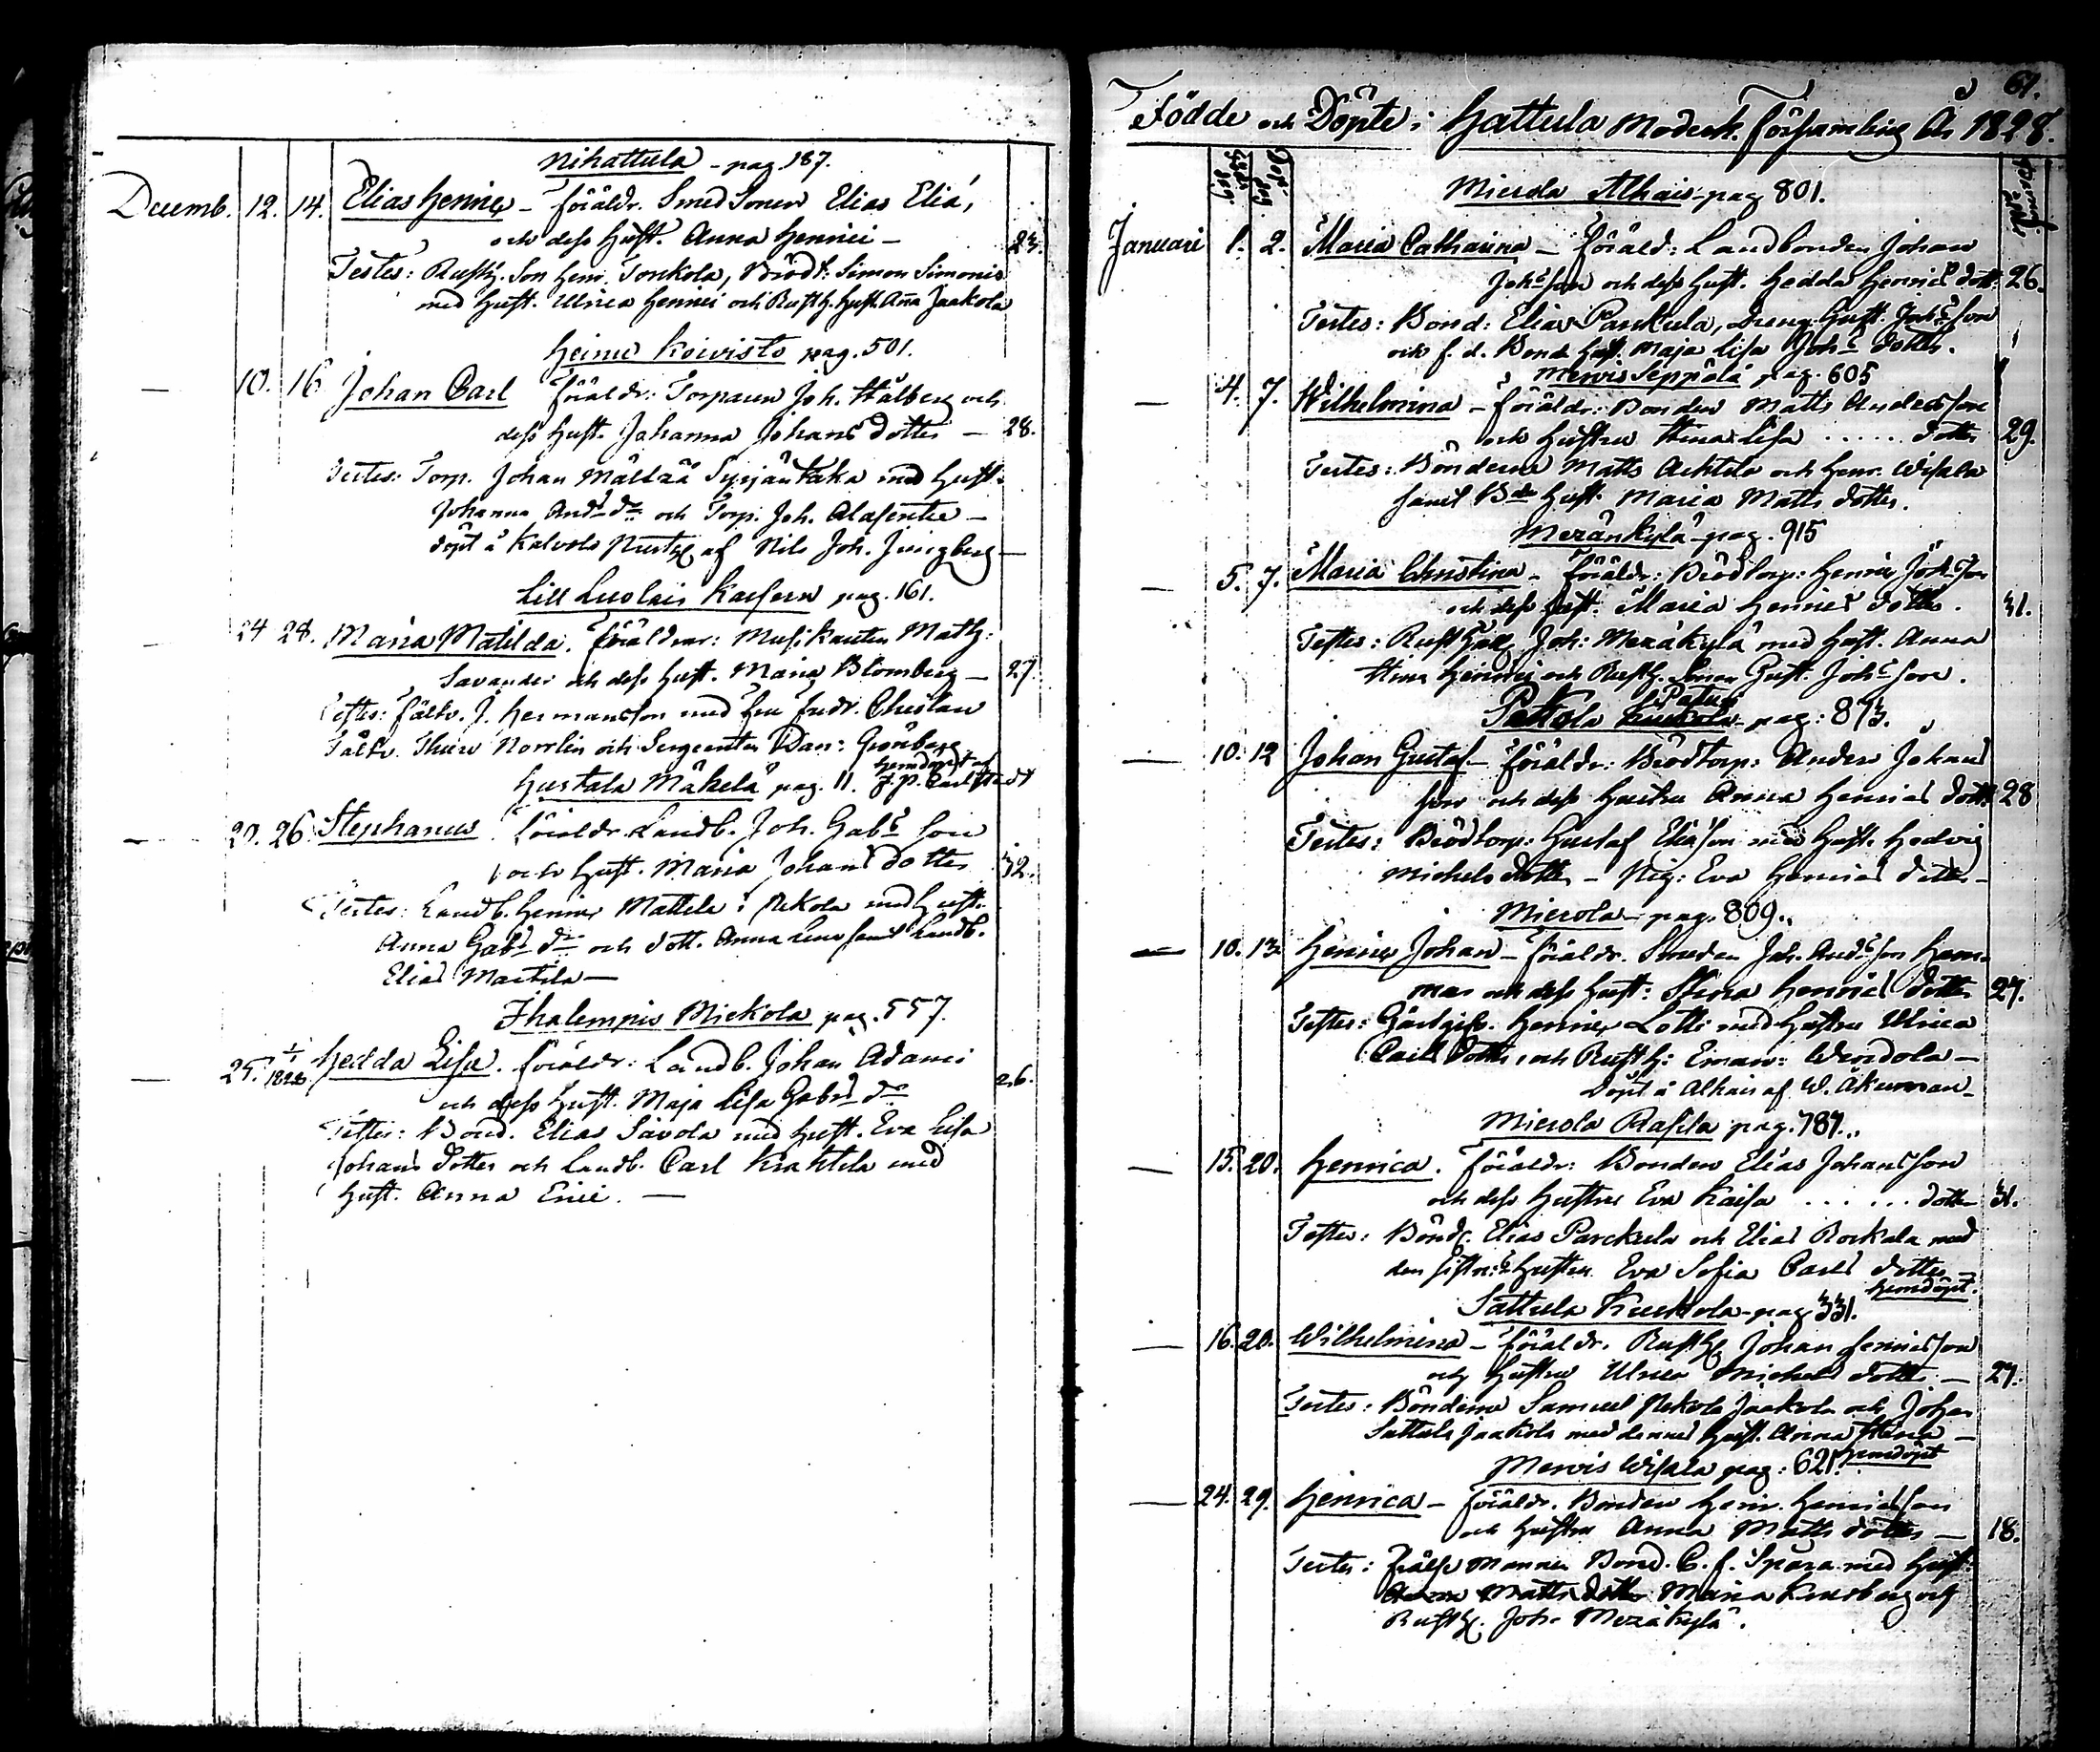 Nihattula - pag. 187.
Decemb. 12. 14. Elias Henric - föräldr. Smed Sonen Elias Eliæ,
och dess Hust. Anna Henrici - 23.
Testes: Rusth. Son Henr. Tonkola, Brödt: Simon Simonis
med Hust. Ulrica Henrici och Rusth. Hust. Anna Jaakola
Heinu Koivisto pag. 501.
— 10. 16 Johan Carl föräldr: Torparen Joh. Hålberg och
dess Hust. Johanna Johans dotter — 28.
Testes: Torp. Johan Mällzää Syrjäntaka med Hust.
Johanna And. dr och Torp. Joh. Alasentie —
döpt i Kalvola af Nils Joh. Jungberg —
Lill Luolais Kaesern pag. 161.
— 24 28. Maria Matilda. föräldrar: Musikanten Math:
Savander och dess Hust. Maria Blomberg — 27.
Testes: fältv. J. Hermansson med fru Fredr.
Fältv. Thure Norrlin och Sergeanten Dan: Grönberg
hemdöpt af
Hurtala Mäkelä pag. 11. J. P.
— 20. 26. Stephanus föräldr. Landb. Joh. Gabs son
och Hust. Maria Johans dotter 32.
Testes: Landb. Henric Mattila i Rekola med Hust.
Anna Gabs dr och dott. Anna Lena samt Landb.
Elias Mattila —
Ihalempis Mickola pag. 557.
— 25. 1/1 1828. Hedda Lisa. föräldr: Landb. Johan Adami
och dess Hust. Maja Lisa Gabrs dr 26.
Testes: Bond. Elias Savola med Hust. Eva Lisa
Johans dotter och Landb. Carl Krahtila med
Hust. Anna Erici. —
61.
Födde och Döpte i Hattula Moderk. Församling År 1828.
Mierola Alhais pag 801.
Januari 1. 2. Maria Catharina — föräld: Landbonden Johan
Johs son och dess Hust. Hedda Henrics dott. 26.
Testes: Bond: Elias Parckula, dreng. Gust. Johs son
och f. d. Bond. Hust. Maja Lisa Johs dotter.
Mervis Seppälä pag. 605
— 4. 7. Wilhelmina — föräldr: Bonden Matts Andersson
och Hustru Stina Lisa ...... dotter 29.
Testes: Bönderne Matts Achtila och Henr. Wisala
samt Bde Hust. Maria Matts dotter.
Meränkylä pag. 915
— 5. 7. Maria Christina — föräldr: Brödtorp: Henric Johs son
och dess Hust. Maria Henrics dotter. 31.
Testes: Rusthåll. Joh: Meräkylä med Hust. Anna
Stina Henrici och Rusth. Sonen Gust. Johs son.
Patua
Pekola pag: 873.
— 10. 12 Johan Gustaf — föräldr: Brödtorp: Anders Johans
son och dess Hustru Anna Henrics dott. 28
Testes: Brödtorp: Gustaf Eliæson med Hust. Hedvig
Michels dotter — Pig: Eva Henrics dotter —
Mierola pag. 809.
— 10. 13. Henric Johan — föräldr. Smeden Joh. Andsson Ham-
mar och dess Hust: Stina Henrics dotter 27.
Testes: Gästgifv. Henric Lotti med Hustru Ulrica
Carls dotter och Rusth: Eman: Wendola —
Döpt i Alhais af W. Åkerman —
Mierola Rasila pag. 787.
— 15. 20. Henrica. föräldr: Bonden Elias Johansson
och dess Hustru Eva Kaisa ...... dotter 31.
Testes: Bönd. Elias Parckula och Elias Rockala med
den sistn:s Hustru Eva Sofia Carls dotter
hemdöpt.
Sattula Kurkola pag. 331.
— 16. 20. Wilhelmina — föräldr. Rusth. Johan Henricsson
och Hustru Ulrica Michels dotter — 27.
Testes: Bönderne Samuel Rekola Jaakola och Johan
Sattula Jaakola med dennes Hust. Anna Stina —
hemdöpt
Mervis Wisala pag: 621.
— 24. 29. Henrica — föräldr. Bonden Henr. Henricsson
och Hustru Anna Matts dotter — 18.
Testes: Frälse Mannen Bond. C. f. Spåra med Hust:
Anna Matts dotter Maria Kruusberg och
Rusth. Joh. Meräkylä.